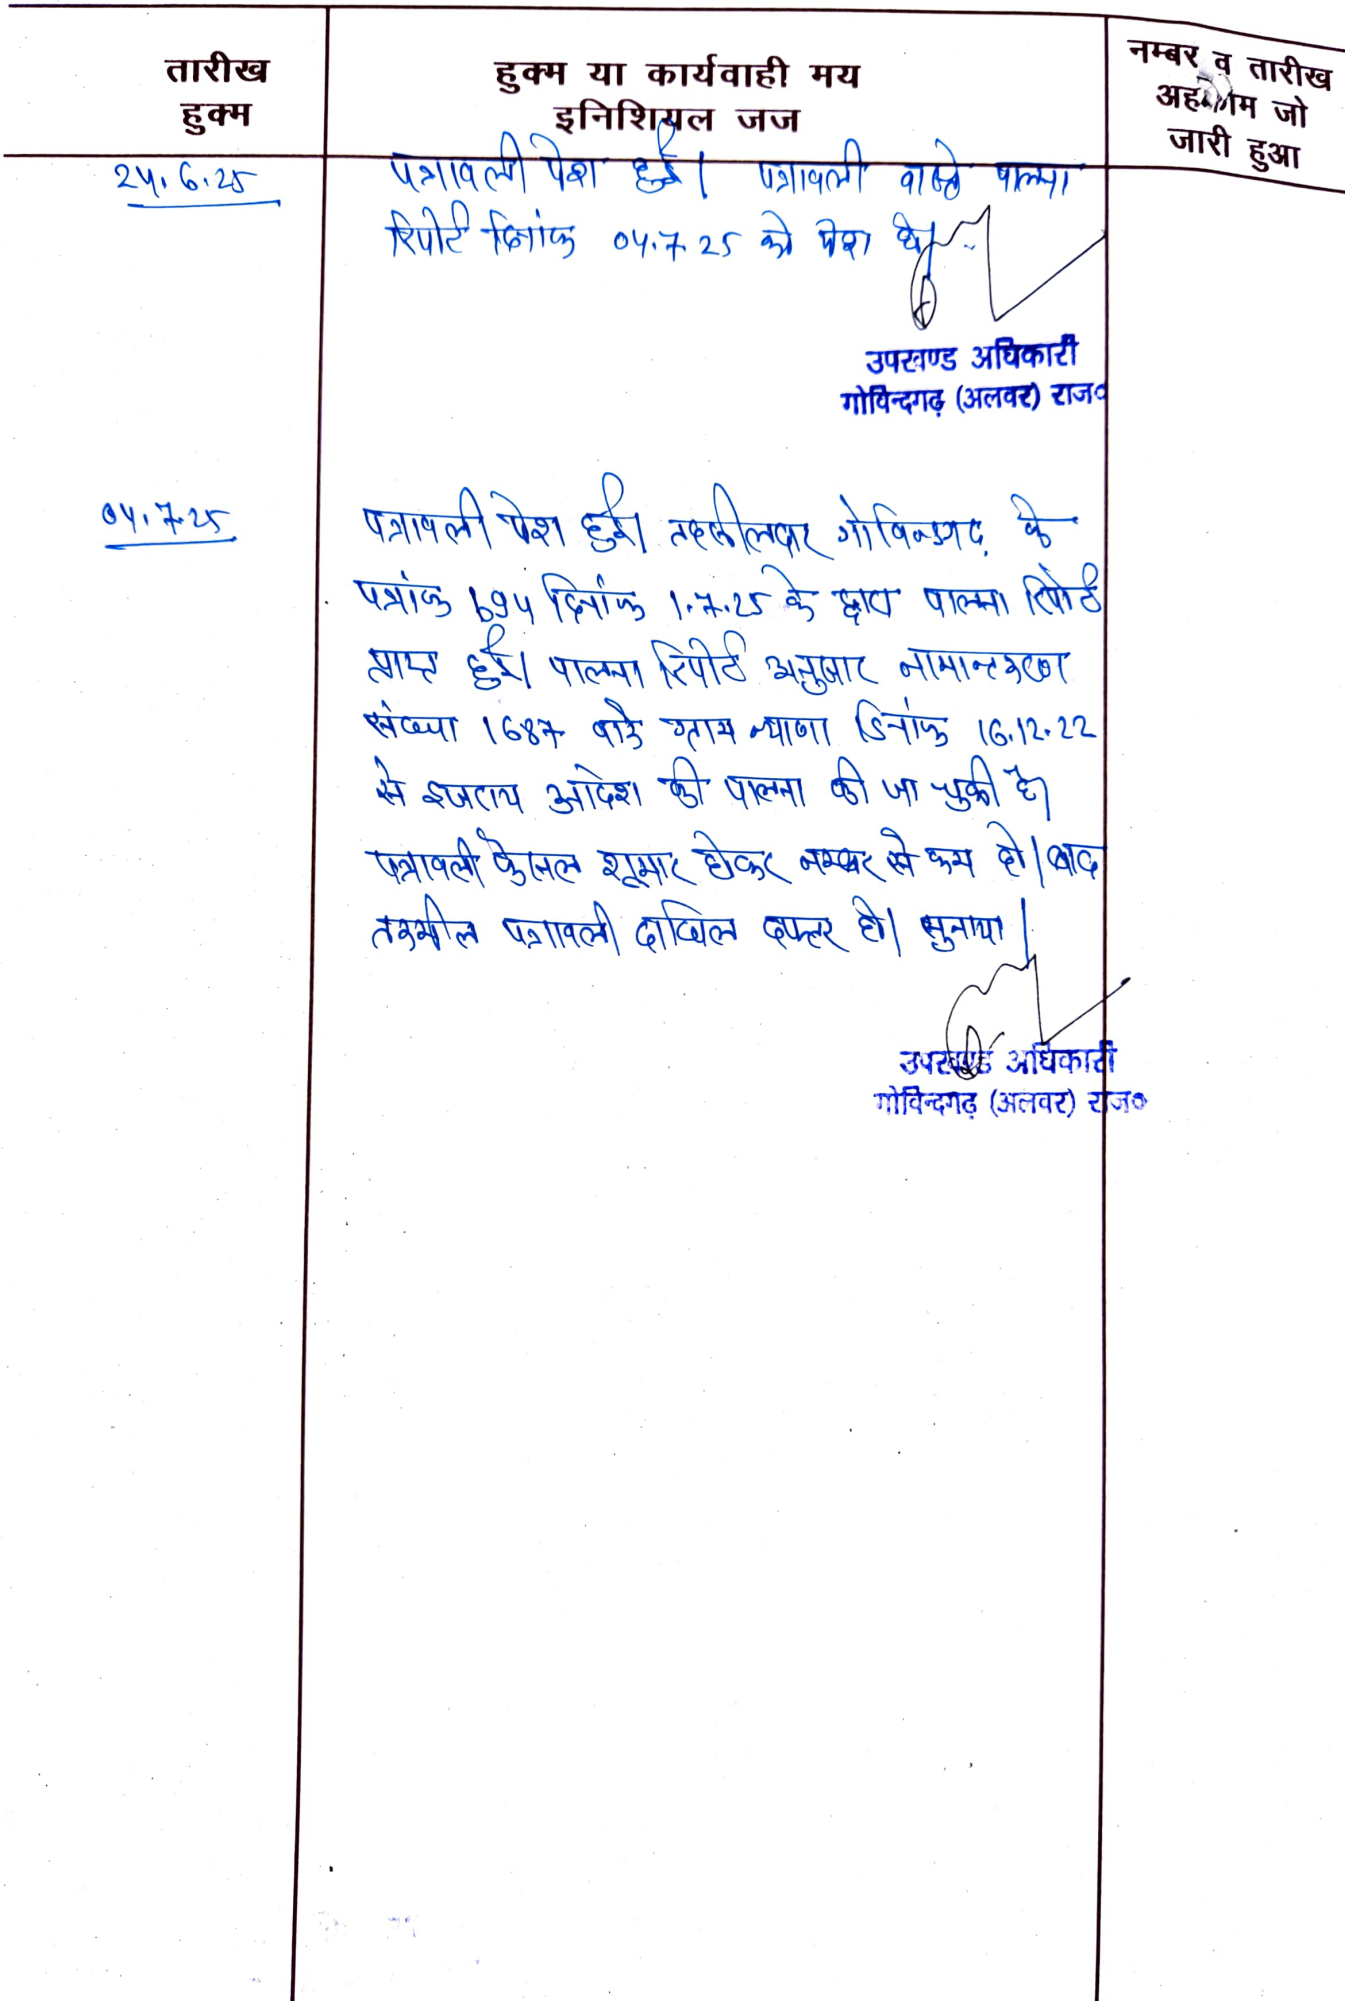 तारीख
हुक्म
हुक्म या कार्यवाही मय
इनिशियल जज
नम्बर व तारीख
अहकाम जो
जारी हुआ
24.6.25
पत्रावली पेश हुई। पत्रावली वास्ते पालना
रिपोर्ट दिनांक 04.7.25 को पेश हो।
उपखण्ड अधिकारी
गोविन्दगढ़ (अलवर) राज०
04.7.25
पत्रावली पेश हुई। तहसीलदार गोविन्दगढ़ के
पत्रांक 694 दिनांक 1.7.25 के द्वारा पालना रिपोर्ट
प्राप्त हुई। पालना रिपोर्ट अनुसार नामान्तकरण
संख्या 1687 वाके ग्राम न्याणा दिनांक 16.12.22
से इजराय आदेश की पालना की जा चुकी है।
पत्रावली फैसल शूमार होकर नम्बर से कम हो। बाद
तकमील पत्रावली दाखिल दफ्तर हो। सुनाया।
उपखण्ड अधिकारी
गोविन्दगढ़ (अलवर) राज०